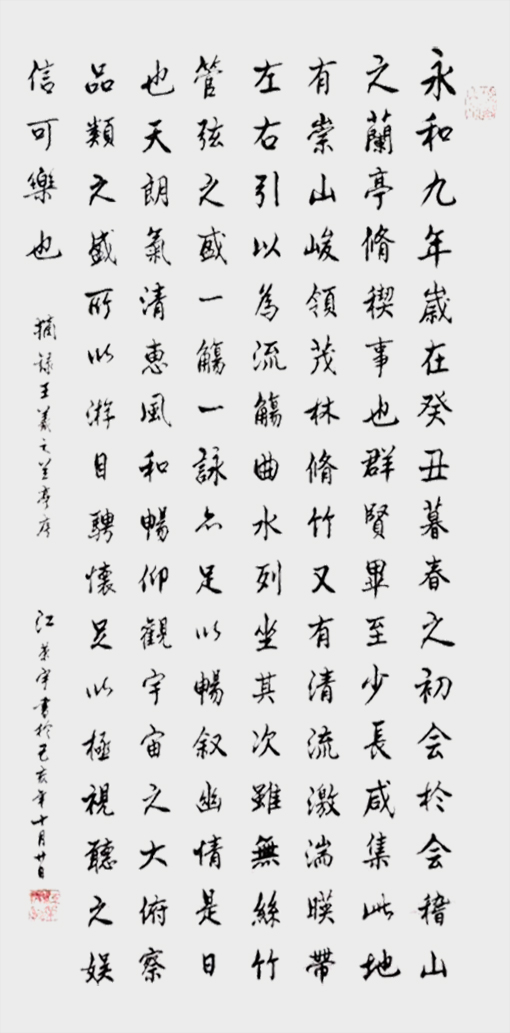 永和九年歲在癸丑暮春之初会於会稽山
之蘭亭脩稧事也群賢畢至少長咸集此地
有崇山峻領茂林脩竹又有清流激湍暎帶
左右引以為流觴曲水列坐其次雖無絲竹
管弦之盛一觴一詠亦足以暢叙幽情是日
也天朗氣清惠風和暢仰觀宇宙之大俯察
品類之盛所以游目騁懷足以極視聽之娱
信可樂也 摘録王羲之兰亭序 江 宇書於己亥年十月廿日